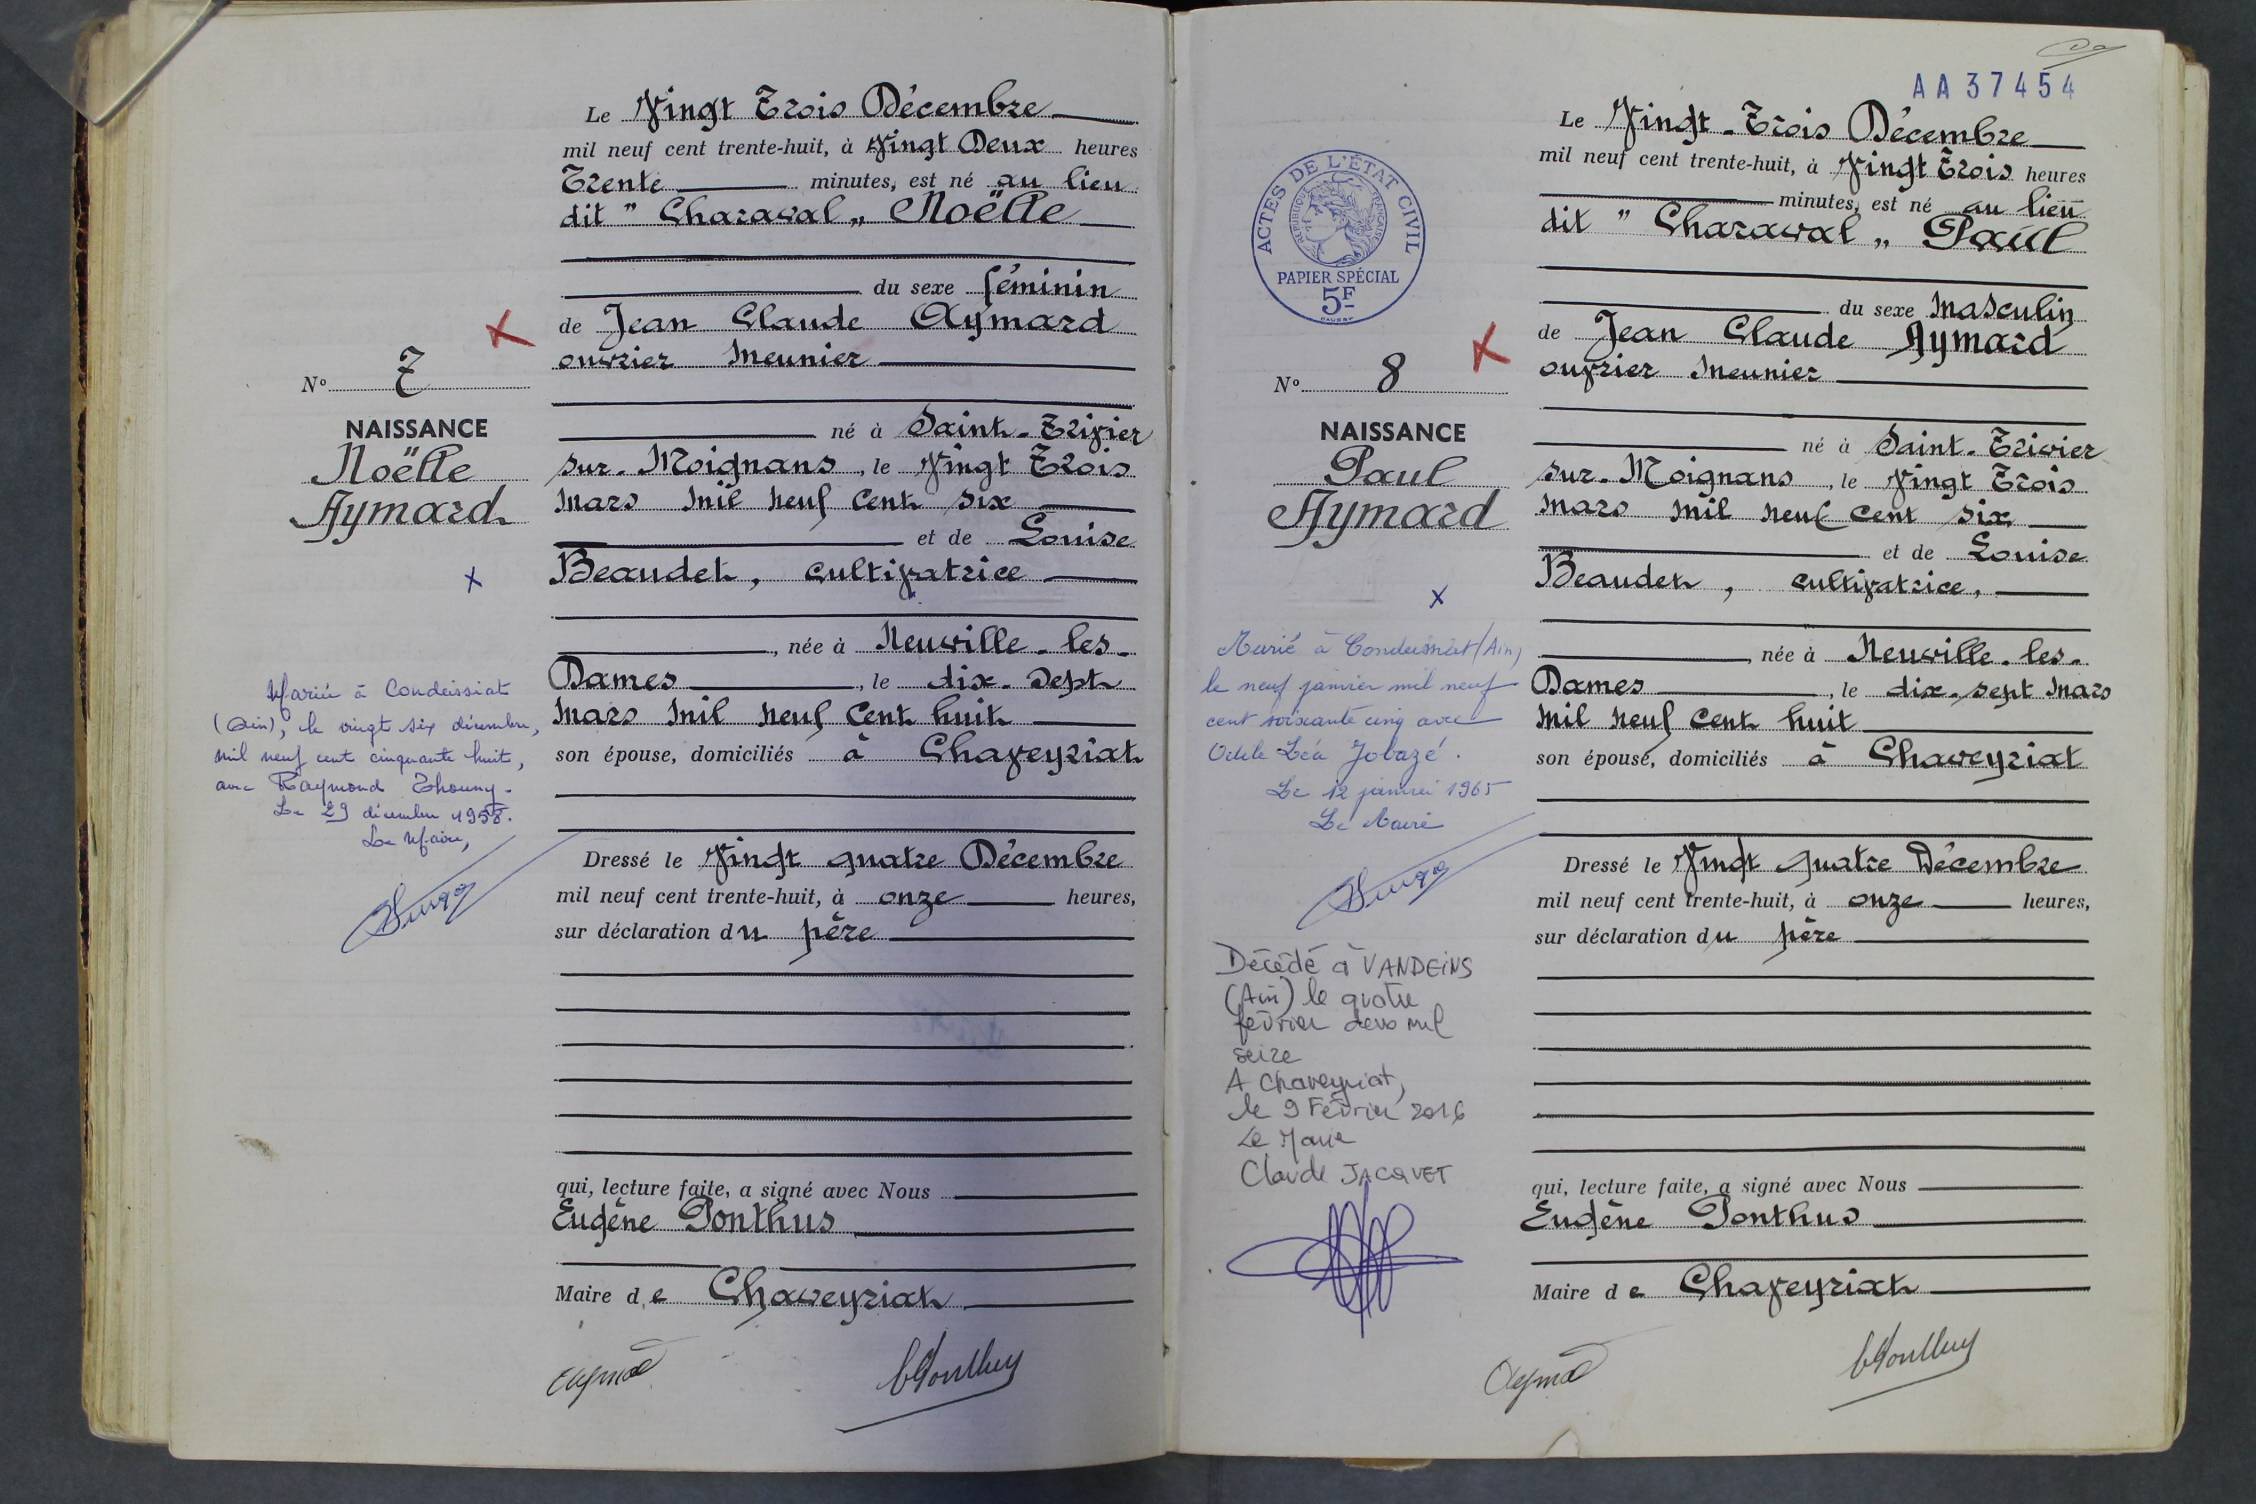 Le Vingt Trois Décembre
mil neuf cent trente-huit, à Vingt Deux heures
Trente minutes, est né au lieu
dit " Charaval „ Noëlle
du sexe féminin
de Jean Claude Aymard
ouvrier meunier
né à Saint-Trivier
sur-Moignans, le Vingt Trois
mars mil neuf cent six
et de Louise
Beaudet, cultivatrice
, née à Neuville-les-
Dames, le dix-sept
mars mil neuf cent huit
son épouse, domiciliés à Chaveyriat
Dressé le Vingt quatre Décembre
mil neuf cent trente-huit, à onze heures,
sur déclaration du père
qui, lecture faite, a signé avec Nous
Eugène Ponthus
Maire de Chaveyriat
N° 7
NAISSANCE
Noëlle
Aymard
x
Mariée à Condeissiat
(Ain), le vingt six décembre,
mil neuf cent cinquante huit,
avec Raymond Thouny.
Le 29 décembre 1958.
Le Maire,
AA 37454
Le Vingt-Trois Décembre
mil neuf cent trente-huit, à Vingt Trois heures
minutes, est né au lieu
dit " Charaval „ Paul
du sexe masculin
de Jean Claude Aymard
ouvrier meunier
né à Saint-Trivier
sur-Moignans, le Vingt Trois
mars mil neuf cent six
et de Louise
Beaudet, cultivatrice,
, née à Neuville-les-
Dames, le dix-sept mars
mil neuf cent huit
son épouse, domiciliés à Chaveyriat
Dressé le Vingt quatre Décembre
mil neuf cent trente-huit, à onze heures,
sur déclaration du père
qui, lecture faite, a signé avec Nous
Eugène Ponthus
Maire de Chaveyriat
ACTES DE L'ÉTAT CIVIL
RÉPUBLIQUE FRANÇAISE
PAPIER SPÉCIAL
5F
N° 8
NAISSANCE
Paul
Aymard
x
Marié à Condeissiat (Ain)
le neuf janvier mil neuf
cent soixante cinq avec
Odile Léa Jobazé.
Le 12 janvier 1965
Le Maire
Décédé à VANDEINS
(Ain) le quatre
février deux mil
seize
A Chaveyriat,
le 9 Février 2016
Le Maire
Claude JACQUET